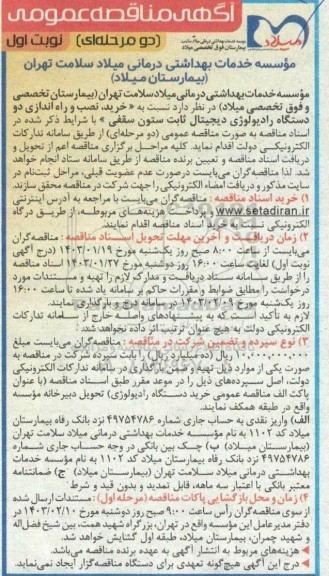 آگهی مناقصه عمومی
میلاد
موسسه خدمات بهداشتی درمانی میلاد سلامت
بیمارستان فوق تخصصی میلاد
(دو مرحله‌ای) نوبت اول
مؤسسه خدمات بهداشتی درمانی میلاد سلامت تهران
(بیمارستان میلاد)
مؤسسه خدمات بهداشتی درمانی میلاد سلامت تهران (بیمارستان تخصصی
و فوق تخصصی میلاد) در نظر دارد نسبت به « خرید، نصب و راه اندازی دو
دستگاه رادیولوژی دیجیتال ثابت ستون سقفی » با شرایط ذکر شده در
اسناد مناقصه به صورت مناقصه عمومی (دو مرحله‌ای) از طریق سامانه تدارکات
الکترونیکی دولت اقدام نماید. کلیه مراحل برگزاری مناقصه اعم از تحویل و
دریافت اسناد مناقصه و تعیین برنده مناقصه از طریق سامانه ستاد انجام خواهد
شد. لذا مناقصه گران می‌بایست درصورت عدم عضویت قبلی، مراحل ثبت‌نام در
سایت مذکور و دریافت امضاء الکترونیکی را جهت شرکت در مناقصه محقق سازند.
۱) خرید اسناد مناقصه : مناقصه گران می‌بایست با مراجعه به آدرس اینترنتی
www.setadiran.ir و پرداخت هزینه‌های مربوطه، از طریق درگاه
الکترونیکی نسبت به خرید اسناد مناقصه اقدام نمایند.
۲) زمان دریافت و آخرین مهلت تحویل اسناد مناقصه : مناقصه گران
می‌بایست از ساعت ۸:۰۰ صبح روز یک‌شنبه مورخ ۱۴۰۳/۰۱/۱۹ (درج آگهی
نوبت اول) لغایت ساعت ۱۶:۰۰ روز دوشنبه مورخ ۱۴۰۳/۰۱/۲۷ اسناد مناقصه
را از طریق سامانه ستاد دریافت و مدارک لازم را تهیه و مستندات مورد
درخواست را مطابق ضوابط و مقررات حاکم بر سامانه یاد شده تا ساعت ۱۶:۰۰
روز یک‌شنبه مورخ ۱۴۰۳/۰۲/۰۹ در سامانه درج و بارگذاری نمایند.
لازم به تأکید است که به پیشنهادهای واصله خارج از سامانه تدارکات
الکترونیکی دولت به هیچ عنوان ترتیب اثر داده نخواهد شد.
۳) نوع سپرده و تضمین شرکت در مناقصه : مناقصه‌گران می‌بایست مبلغ
۱۰,۰۰۰,۰۰۰,۰۰۰ ریال (ده میلیارد ریال) را بابت سپرده شرکت در مناقصه به
صورت یکی از موارد ذیل تهیه و ضمن بارگذاری در سامانه تدارکات الکترونیکی
دولت، اصل سپرده‌های ذیل را در موعد مقرر طبق اسناد مناقصه (با عنوان
پاکت الف مناقصه عمومی خرید دستگاه رادیولوژی) تحویل دبیرخانه مؤسسه
واقع در طبقه همکف نمایند.
الف) واریز نقدی به حساب جاری شماره ۴۹۷۵۴۷۸۶ نزد بانک رفاه بیمارستان
میلاد کد ۱۱۰۲ به نام مؤسسه خدمات بهداشتی درمانی میلاد سلامت تهران
(بیمارستان میلاد) ب) چک بین بانکی در وجه حساب جاری شماره
۴۹۷۵۴۷۸۶ نزد بانک رفاه بیمارستان میلاد کد ۱۱۰۲ به نام مؤسسه خدمات
بهداشتی درمانی میلاد سلامت تهران (بیمارستان میلاد) ج) ضمانتنامه
معتبر بانکی با اعتبار سه ماهه، قابل تمدید و بدون قید و شرط
۴) زمان و محل بازگشایی پاکات مناقصه (مرحله اول) : مستندات ارسال شده
از سوی مناقصه‌گران رأس ساعت ۹:۰۰ صبح روز دوشنبه مورخ ۱۴۰۳/۰۲/۱۰ در
دفتر مدیرعامل این مؤسسه واقع در تهران، بزرگراه شهید همت، بین شیخ فضل‌اله
و شهید چمران، بیمارستان میلاد، طبقه اول گشایش خواهد شد.
هزینه‌های مربوط به انتشار آگهی به عهده برنده مناقصه می‌باشد.
درج این آگهی هیچ‌گونه تعهدی برای دستگاه مناقصه‌گزار ایجاد نمی‌نماید.